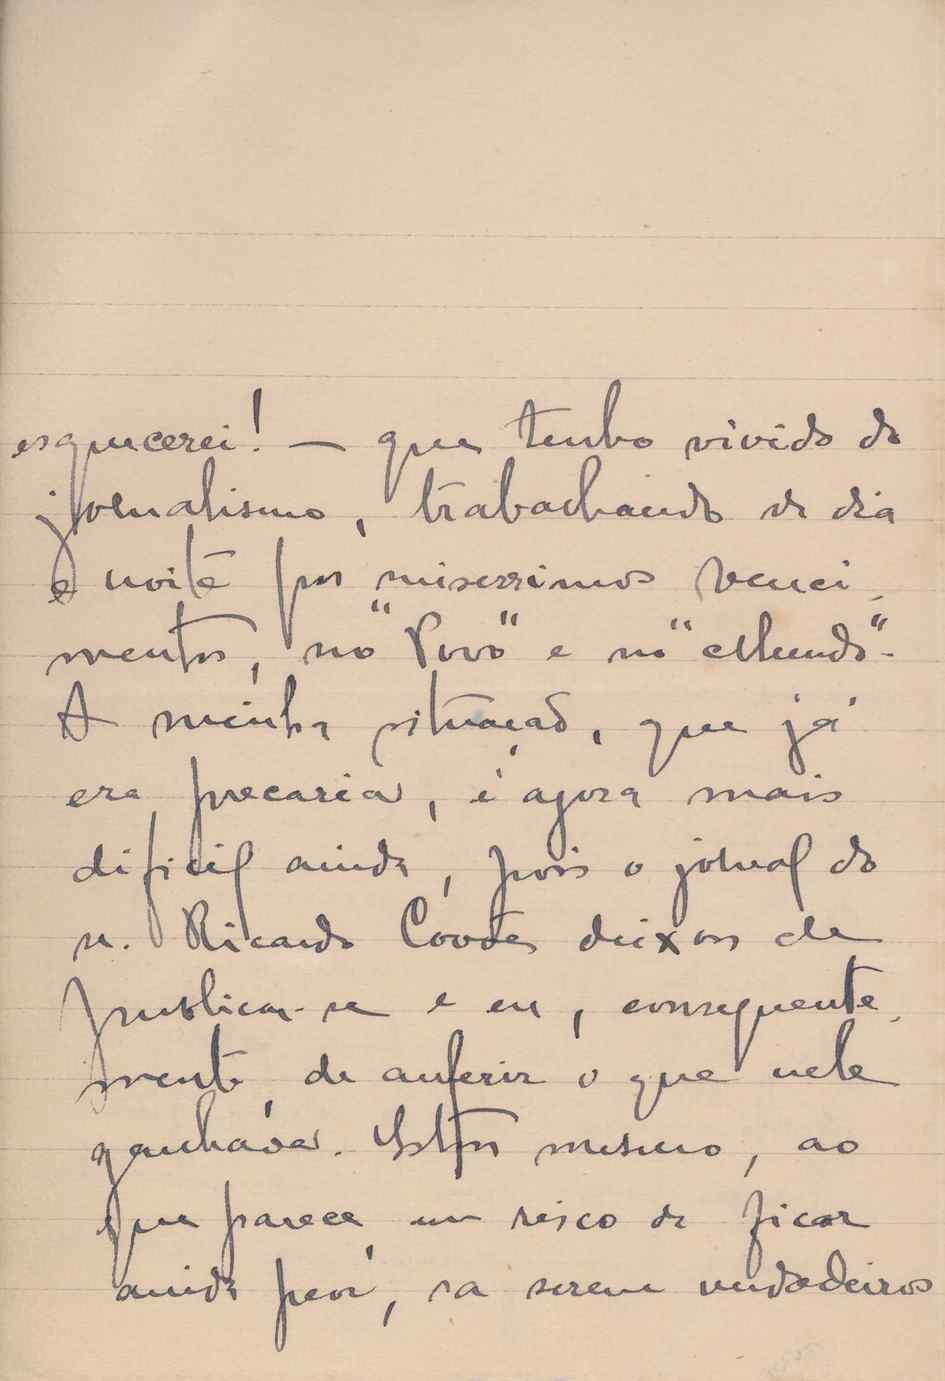 esquecerei! — que tenho vivido do
jornalismo, trabalhando de dia
e noite por miserrimos venci-
mentos, no "Povo" e no "Mundo".
A minha situação, que já
era precaria, é agora mais
dificil ainda, pois o jornal do
sr. Ricardo Covões deixou de
publicar-se e eu, consequente-
mente, de auferir o que nele
ganhava. Estou mesmo, ao
que parece em risco de ficar
ainda peor, sa serem verdadeiros